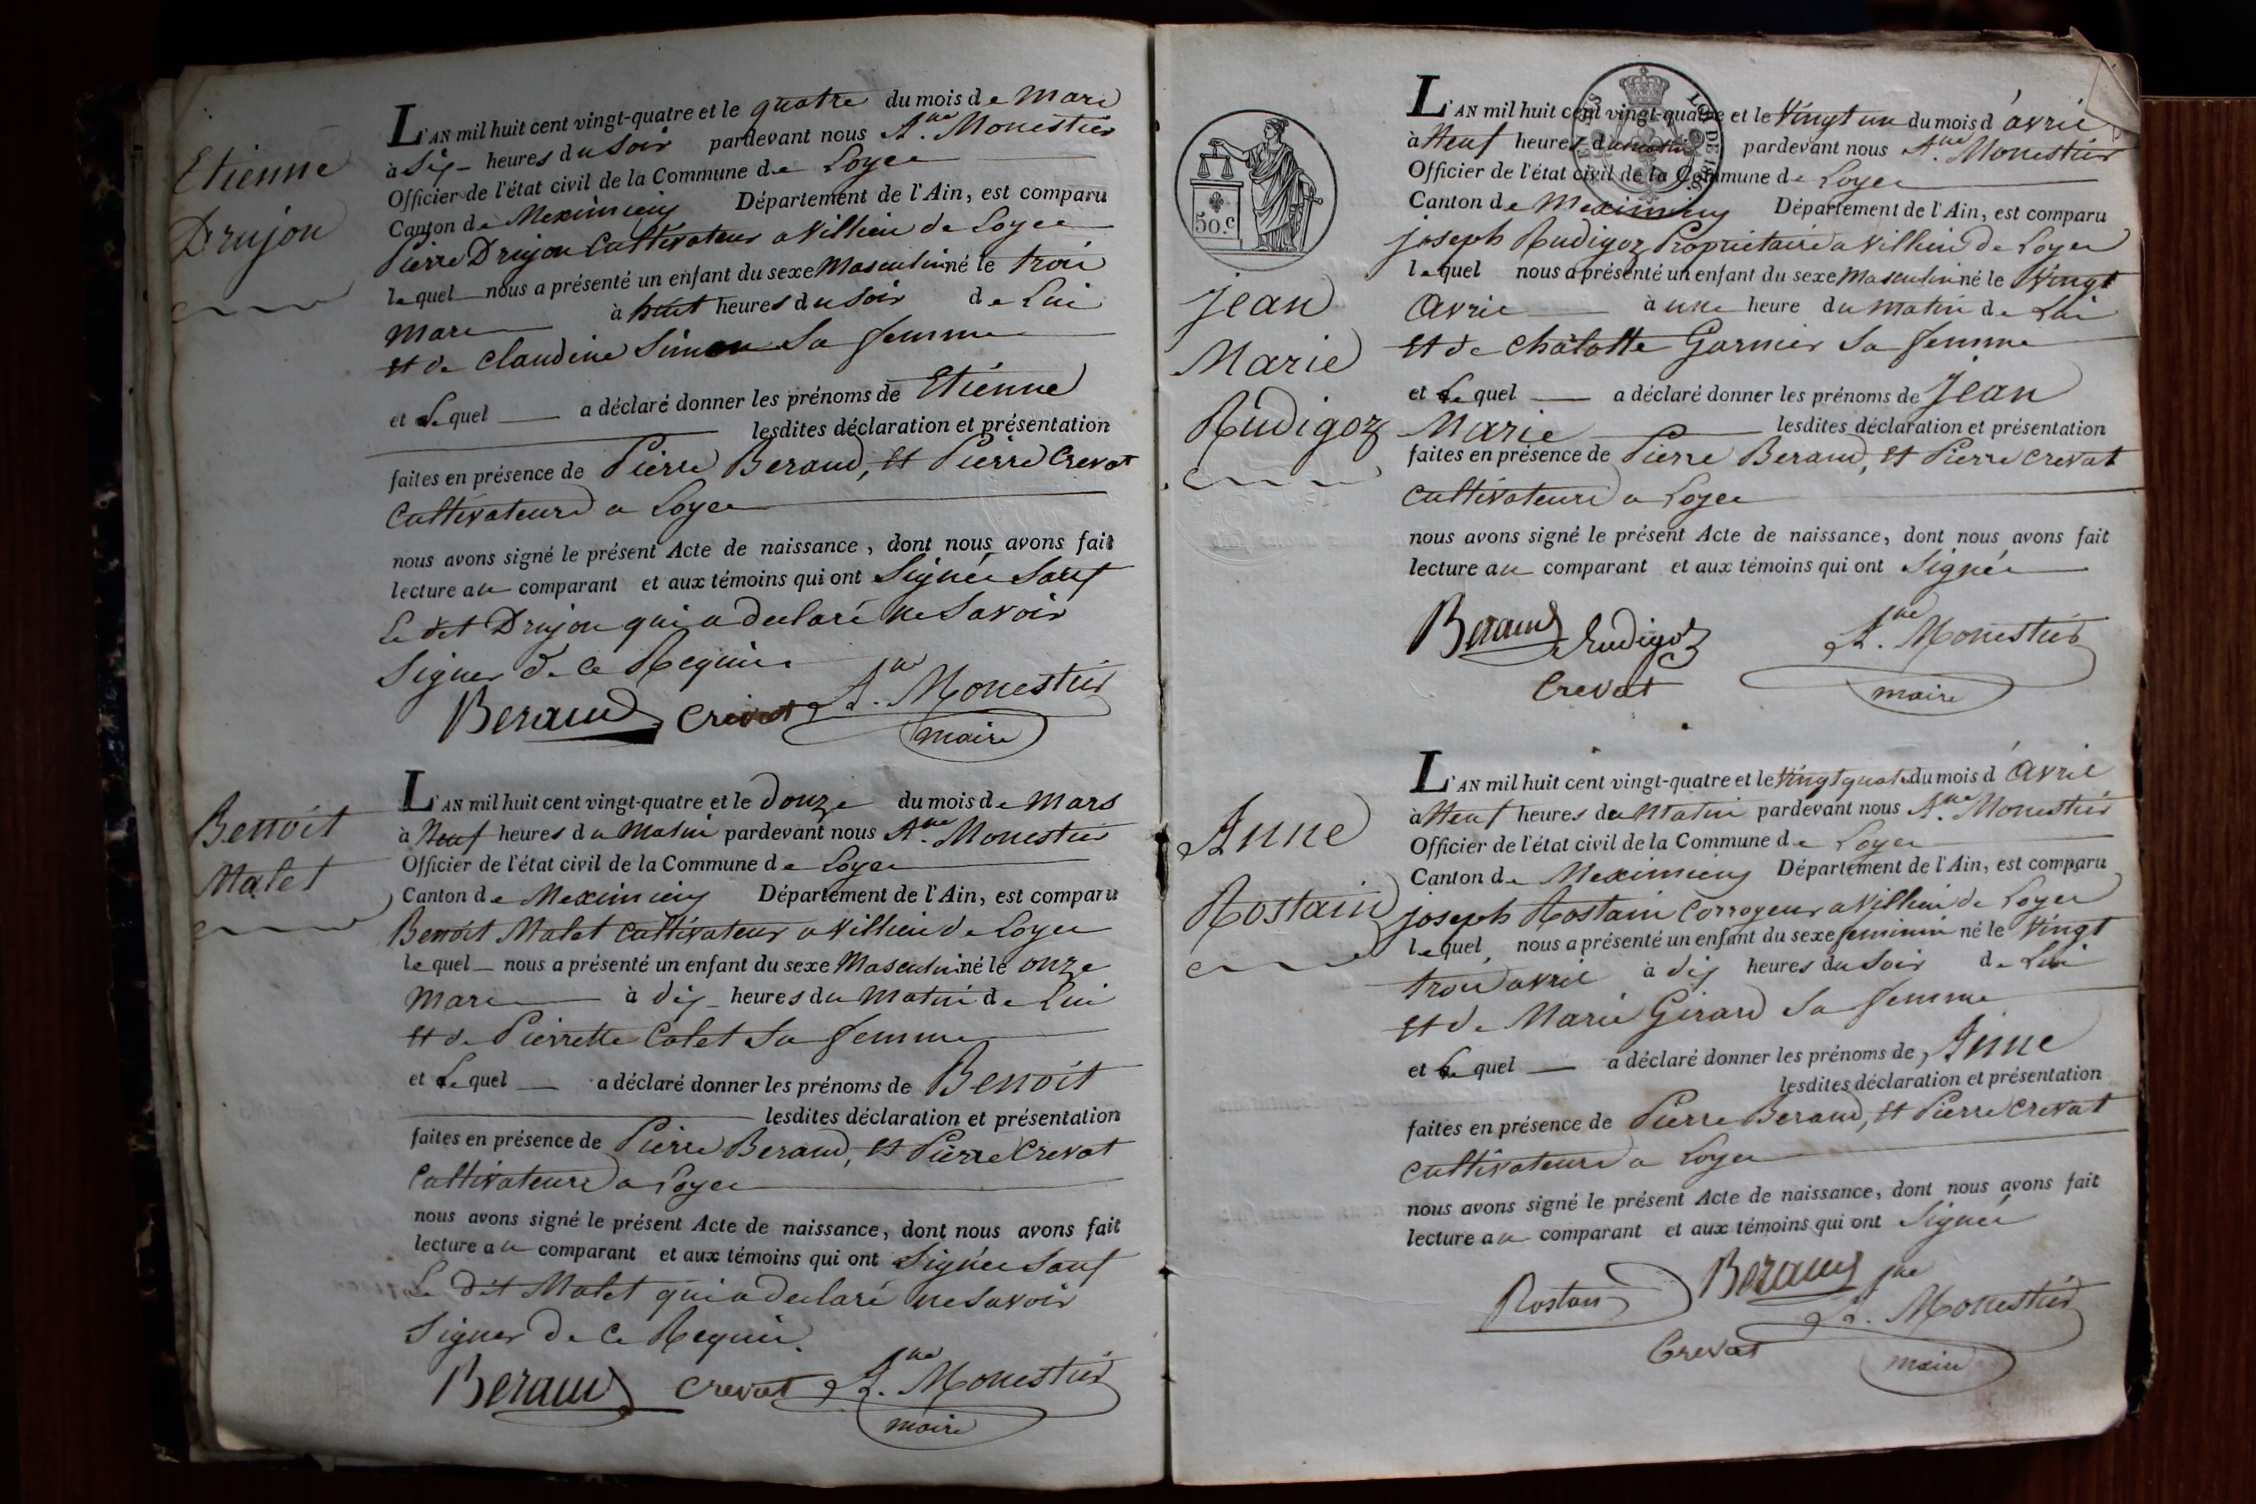 Etienne
Drujon
L'AN mil huit cent vingt-quatre et le quatre du mois de Mars
à dix heures du Soir pardevant nous A.ne Monestier
Officier de l'état civil de la Commune de Loyes
Canton de Meximieux Département de l'Ain, est comparu
Pierre Drujon Cultivateur a Villieu de Loyes
lequel nous a présenté un enfant du sexe Masculin né le trois
Mars à huit heures du Soir de Lui
et de Claudine Simon Sa femme
et Lequel a déclaré donner les prénoms de Etienne
lesdites déclaration et présentation
faites en présence de Pierre Beraud, et Pierre Crevat
Cultivateurs a Loyes
nous avons signé le présent Acte de naissance, dont nous avons fait
lecture au comparant et aux témoins qui ont Signés Sauf
Le dit Drujon qui a declaré ne Savoir
Signer de ce Requis
Beraud Crevat A.ne Monestier
maire
Benoit
Malet
L'AN mil huit cent vingt-quatre et le Douze du mois de Mars
à Neuf heures du Matin pardevant nous A.ne Monestier
Officier de l'état civil de la Commune de Loyes
Canton de Meximieux Département de l'Ain, est comparu
Benoit Malet Cultivateur a Villieu de Loyes
lequel nous a présenté un enfant du sexe Masculin né le onze
Mars à dix heures du Matin de Lui
et de Pierrette Colet Sa femme
et Lequel a déclaré donner les prénoms de Benoit
lesdites déclaration et présentation
faites en présence de Pierre Beraud, et Pierre Crevat
Cultivateurs a Loyes
nous avons signé le présent Acte de naissance, dont nous avons fait
lecture au comparant et aux témoins qui ont Signés Sauf
Le dit Malet qui a declaré ne Savoir
Signer de ce Requis.
Beraud Crevat A.ne Monestier
maire
50.c
LOI DE
Jean
Marie
Rudigoz
L'AN mil huit cent vingt-quatre et le Vingt un du mois d'avril
à Neuf heures du matin pardevant nous A.ne Monestier
Officier de l'état civil de la Commune de Loyes
Canton de Meximieux Département de l'Ain, est comparu
joseph Rudigoz Propriétaire a Villieu de Loyes
lequel nous a présenté un enfant du sexe Masculin né le Vingt
Avril à une heure du Matin de Lui
et de Chalotte Garnier Sa femme
et Le quel a déclaré donner les prénoms de Jean
Marie lesdites déclaration et présentation
faites en présence de Pierre Beraud, et Pierre Crevat
Cultivateurs a Loyes
nous avons signé le présent Acte de naissance, dont nous avons fait
lecture au comparant et aux témoins qui ont Signés
Beraud Rudigoz A.ne Monestier
Crevat maire
Anne
Rostain
L'AN mil huit cent vingt-quatre et le Vingt quatre du mois d'Avril
à Neuf heures du Matin pardevant nous A.ne Monestier
Officier de l'état civil de la Commune de Loyes
Canton de Meximieux Département de l'Ain, est comparu
joseph Rostain Corroyeur a Villieu de Loyes
lequel nous a présenté un enfant du sexe feminin né le Vingt
trois avril à dix heures du Soir de Lui
et de Marie Girard Sa femme
et Le quel a déclaré donner les prénoms de Anne
lesdites déclaration et présentation
faites en présence de Pierre Beraud, et Pierre Crevat
Cultivateurs a Loyes
nous avons signé le présent Acte de naissance, dont nous avons fait
lecture au comparant et aux témoins qui ont Signés
Rostain Beraud A.ne Monestier
Crevat maire